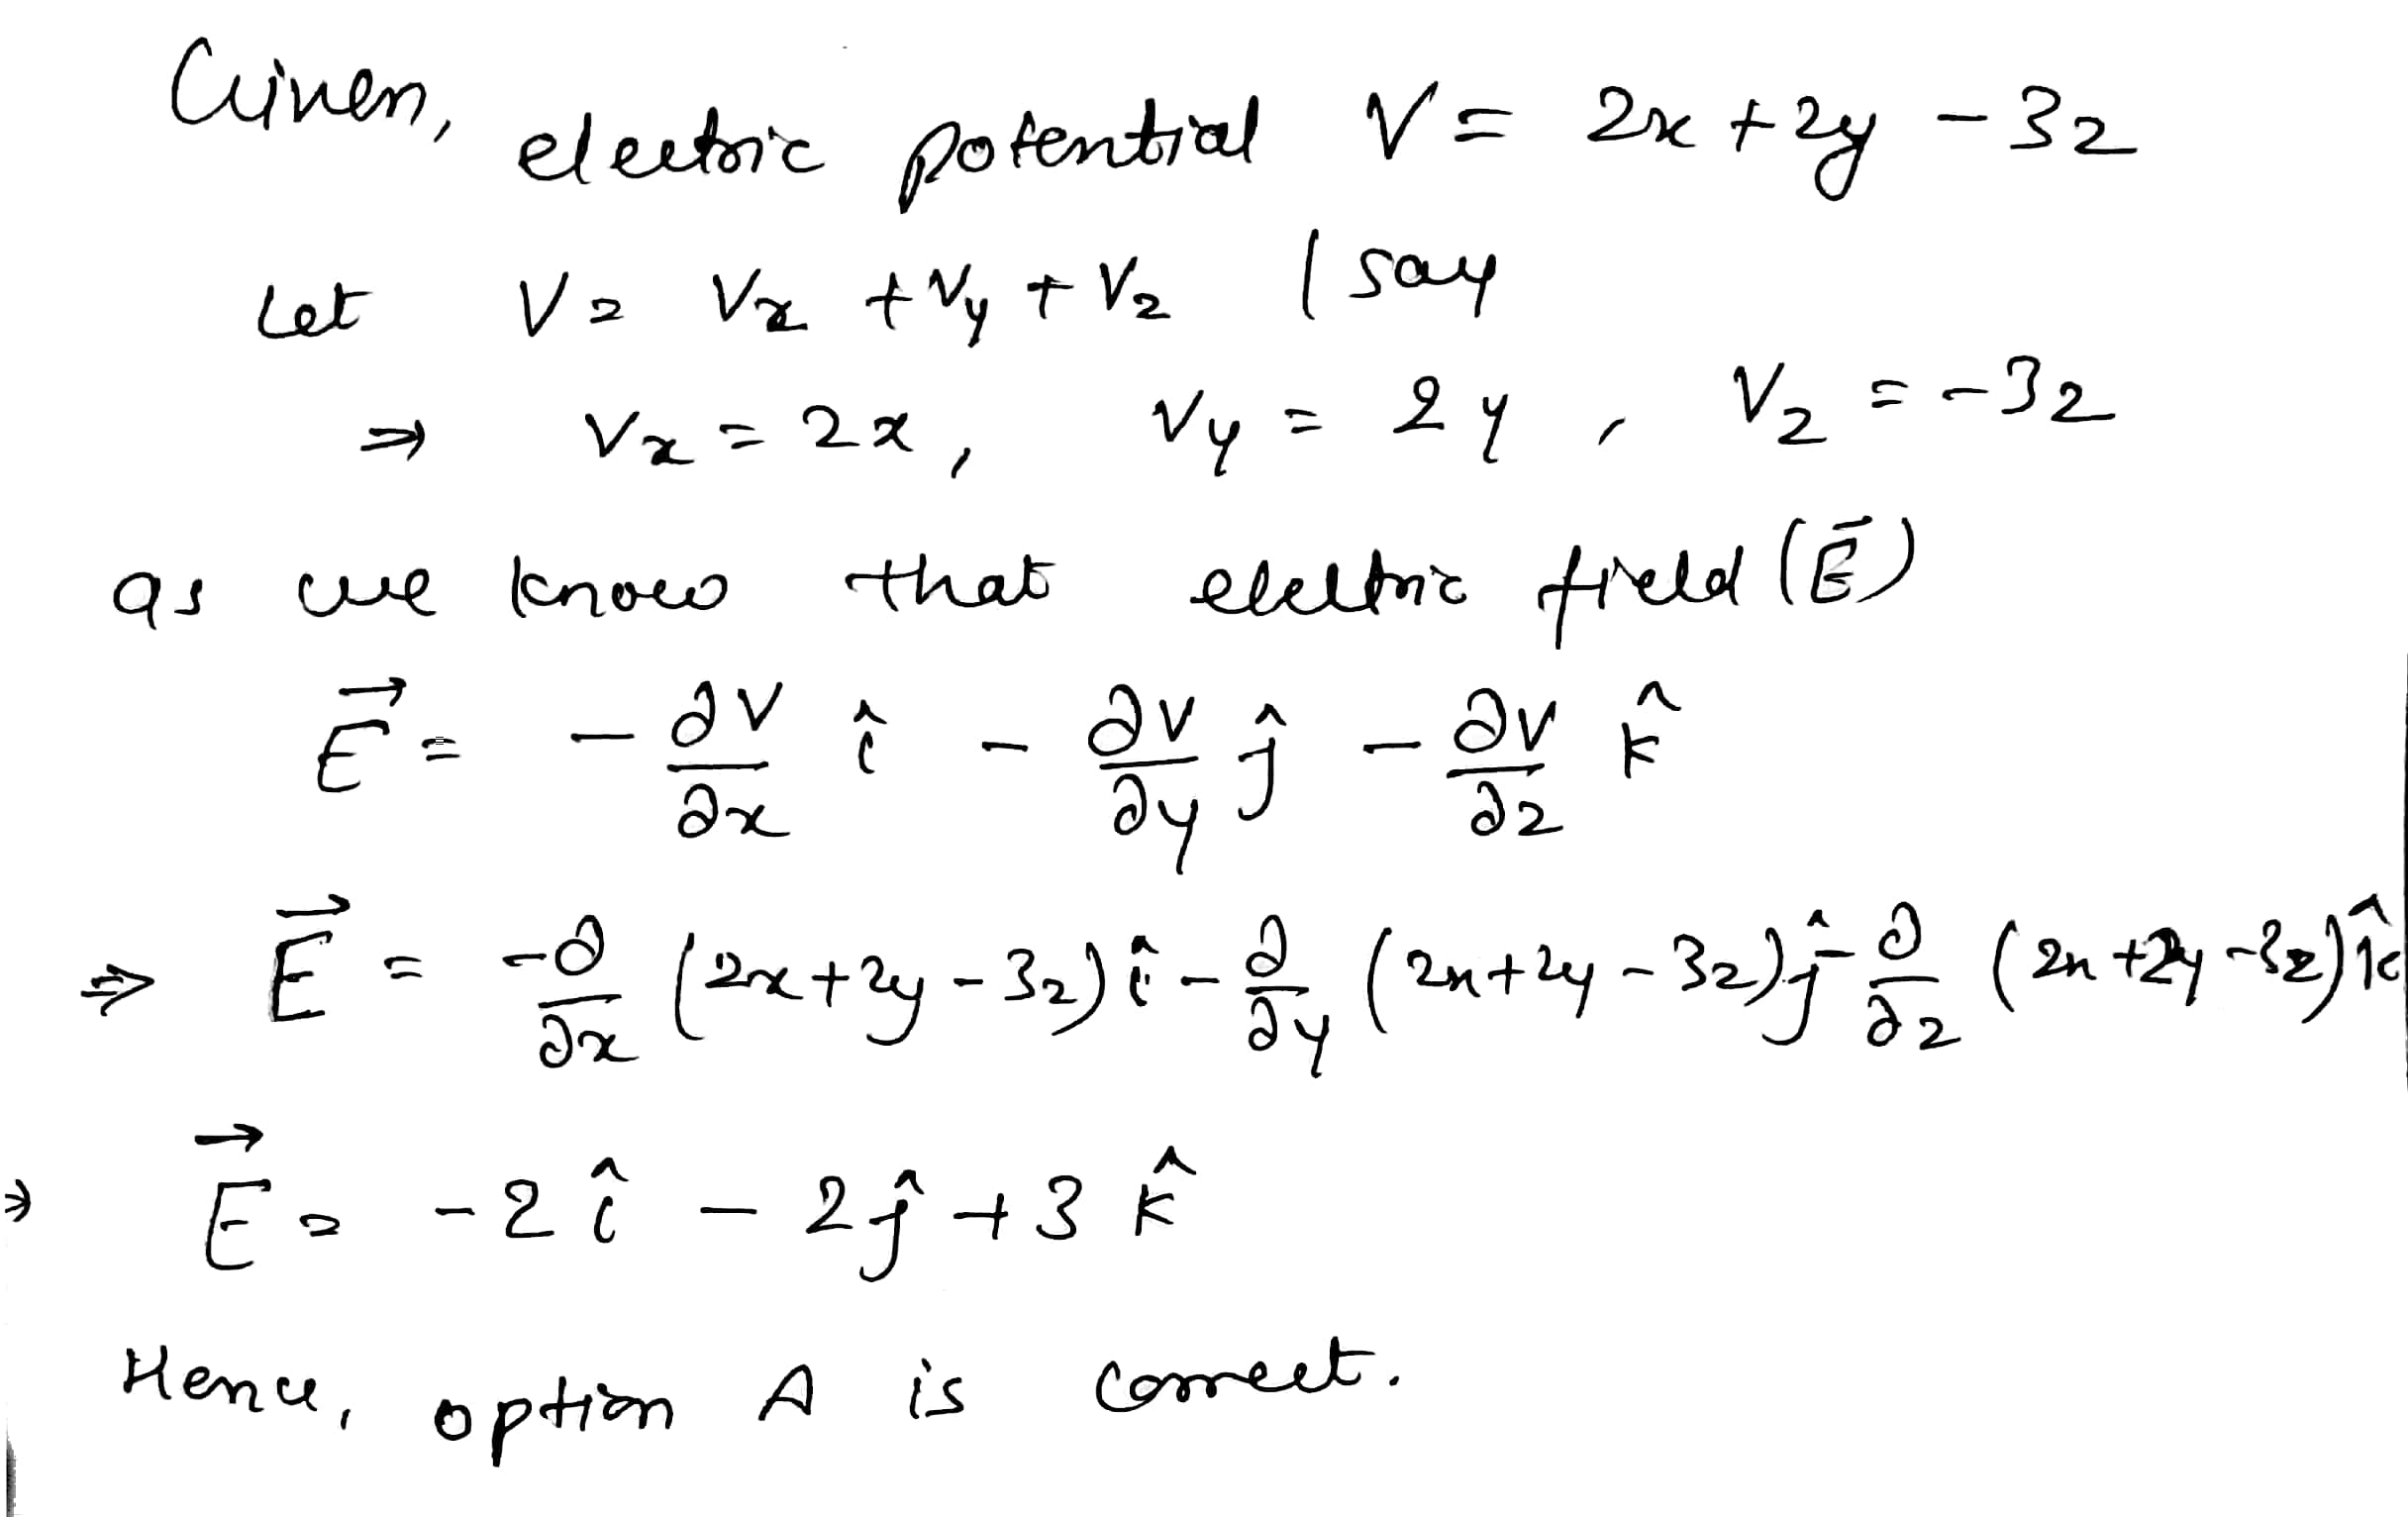 Given, electric potential V = 2x + 2y - 3z
Let V = Vx + Vy + Vz (say
⇒ Vx = 2x, Vy = 2y, Vz = -3z
as we know that electric field (E⃗)
E⃗ = - ∂V/∂x î - ∂V/∂y ĵ - ∂V/∂z k̂
⇒ E⃗ = -∂/∂x (2x+2y-3z) î - ∂/∂y (2x+2y-3z) ĵ - ∂/∂z (2x+2y-3z) k̂
⇒ E⃗ = -2 î - 2 ĵ + 3 k̂
Hence, option A is correct.